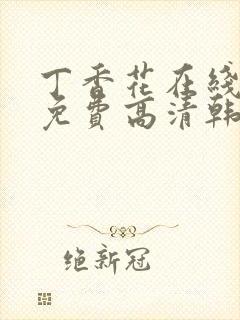 丁香花在线
免費高清韩
绝新冠